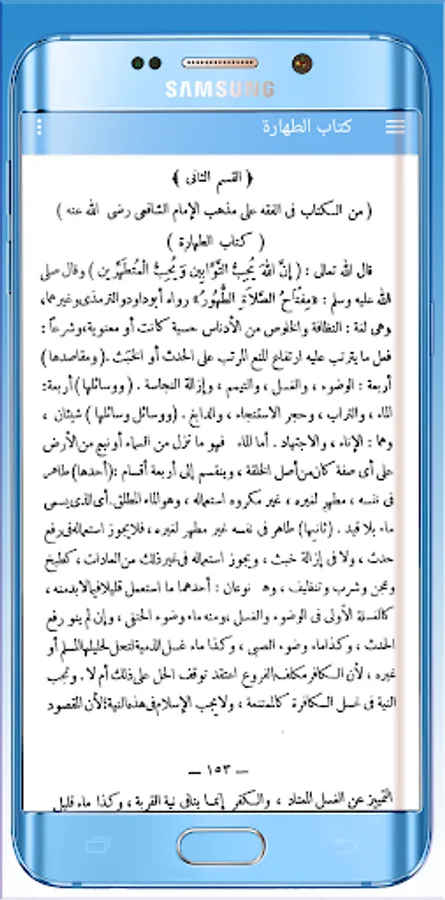 SAMSUNG
كتاب الطهارة
﴿ القسم الثانى ﴾
( من الكتاب فى الفقه على مذهب الإمام الشافعى رضى الله عنه )
( كتاب الطهارة )
قال الله تعالى : ( إِنَّ اللهَ يُحِبُّ التَّوَّابِينَ وَيُحِبُّ الْمُتَطَهِّرِين ) وقال صلى
الله عليه وسلم : «مِفْتَاحُ الصَّلاَةِ الطُّهُورُ» رواه أبوداود والترمذى وغيرهما،
وهى لغة : النظافة والخلوص من الأدناس حسية كانت أو معنوية، وشرعاً :
فعل ما يترتب عليه ارتفاع المنع المرتب على الحدث أو الخبَث . (ومقاصدها)
أربعة : الوضوء ، والغسل ، والتيمم ، وإزالة النجاسة . (ووسائلها) أربعة:
الماء ، والتراب ، وحجر الاستنجاء ، والدابغ . (ووسائل وسائلها) شيئان ،
وهما : الإناء ، والاجتهاد . أما الماء فهو ما نزل من السماء أو نبع من الأرض
على أى صفة كان من أصل الخلقة ، وينقسم إلى أربعة أقسام : (أحدها) طاهر
فى نفسه ، مطهر لغيره ، غير مكروه استعماله ، وهو الماء المطلق. أى الذى يسمى
ماء بلا قيد . (ثانيها) طاهر فى نفسه غير مطهر لغيره ، فلا يجوز استعماله فى رفع
حدث ، ولا فى إزالة خبث ، ويجوز استعماله فى غير ذلك من العادات ، كطبخ
وعجن وشرب وتنظيف ، وه نوعان : أحدهما ما استعمل قليلا فيما لا بد منه ،
كالغسلة الأولى فى الوضوء والغسل ، ومنه ماء وضوء الحنفى ، وإن لم ينو رفع
الحدث ، وكذا ماء وضوء الصبى ، وكذا ماء غسل الذمية لتحل لحليلها المسلم أو
غيره ، لأن الكافر مكلف الفروع اعتقد توقف الحل على ذلك أم لا . وتجب
النية فى غسل الكافرة كالممتنعة ، ولا يجب الإسلام فى هذه النية؛ لأن المقصود
— ١٥٣ —
التمييز عن الغسل المعتاد ، والكفر إنما ينافى نية القربة ، وكذا ماء قليل